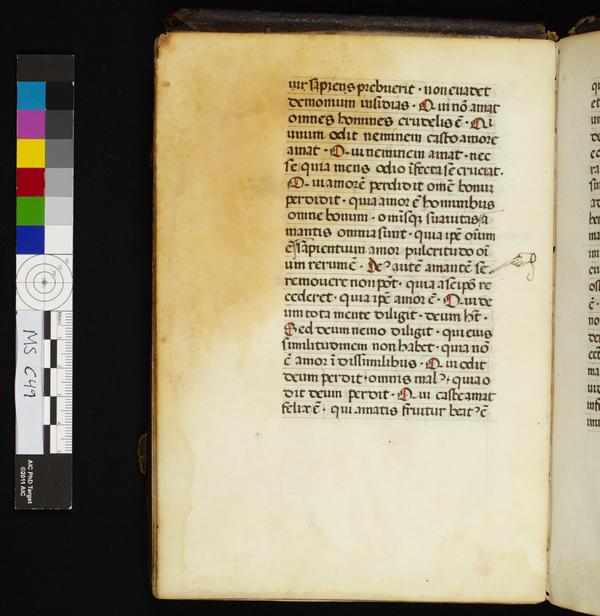 uir sapiens prebuerit · non euadet
demonium insidias · Qui nō amat
omnes homines crudelis ē · Qui
unum odit neminem casto amore
amat · Qui neminem amat · nec
se / quia mens odio īfecta sē cruciat ·
Qui amorē perdidit om̄e bonum
perdidit · quia amor ē hominibus
omne bonum · omīsq suauitas / a
mantis omnia sunt · quia ipē
ē / sapientum amor pulcritudo
um rerum ē · De⁹ autē amantē sē
remouere non pōt · quia a se ipō re
cederet · quia ipē amor ē · Qui de
um tota mente diligit · deum h̄t ·
Sed deum nemo diligit · qui eius
similitudinem non habet · quia nō
ē amor ī dissimilibus · Qui odit
deum perdit · omnis mal⁹ · quia o
dit deum perdit · Qui caste amat
felix ē · qui amatis fruitur beat⁹ ē
MS C49
AIC PhD Target
©2011 AIC